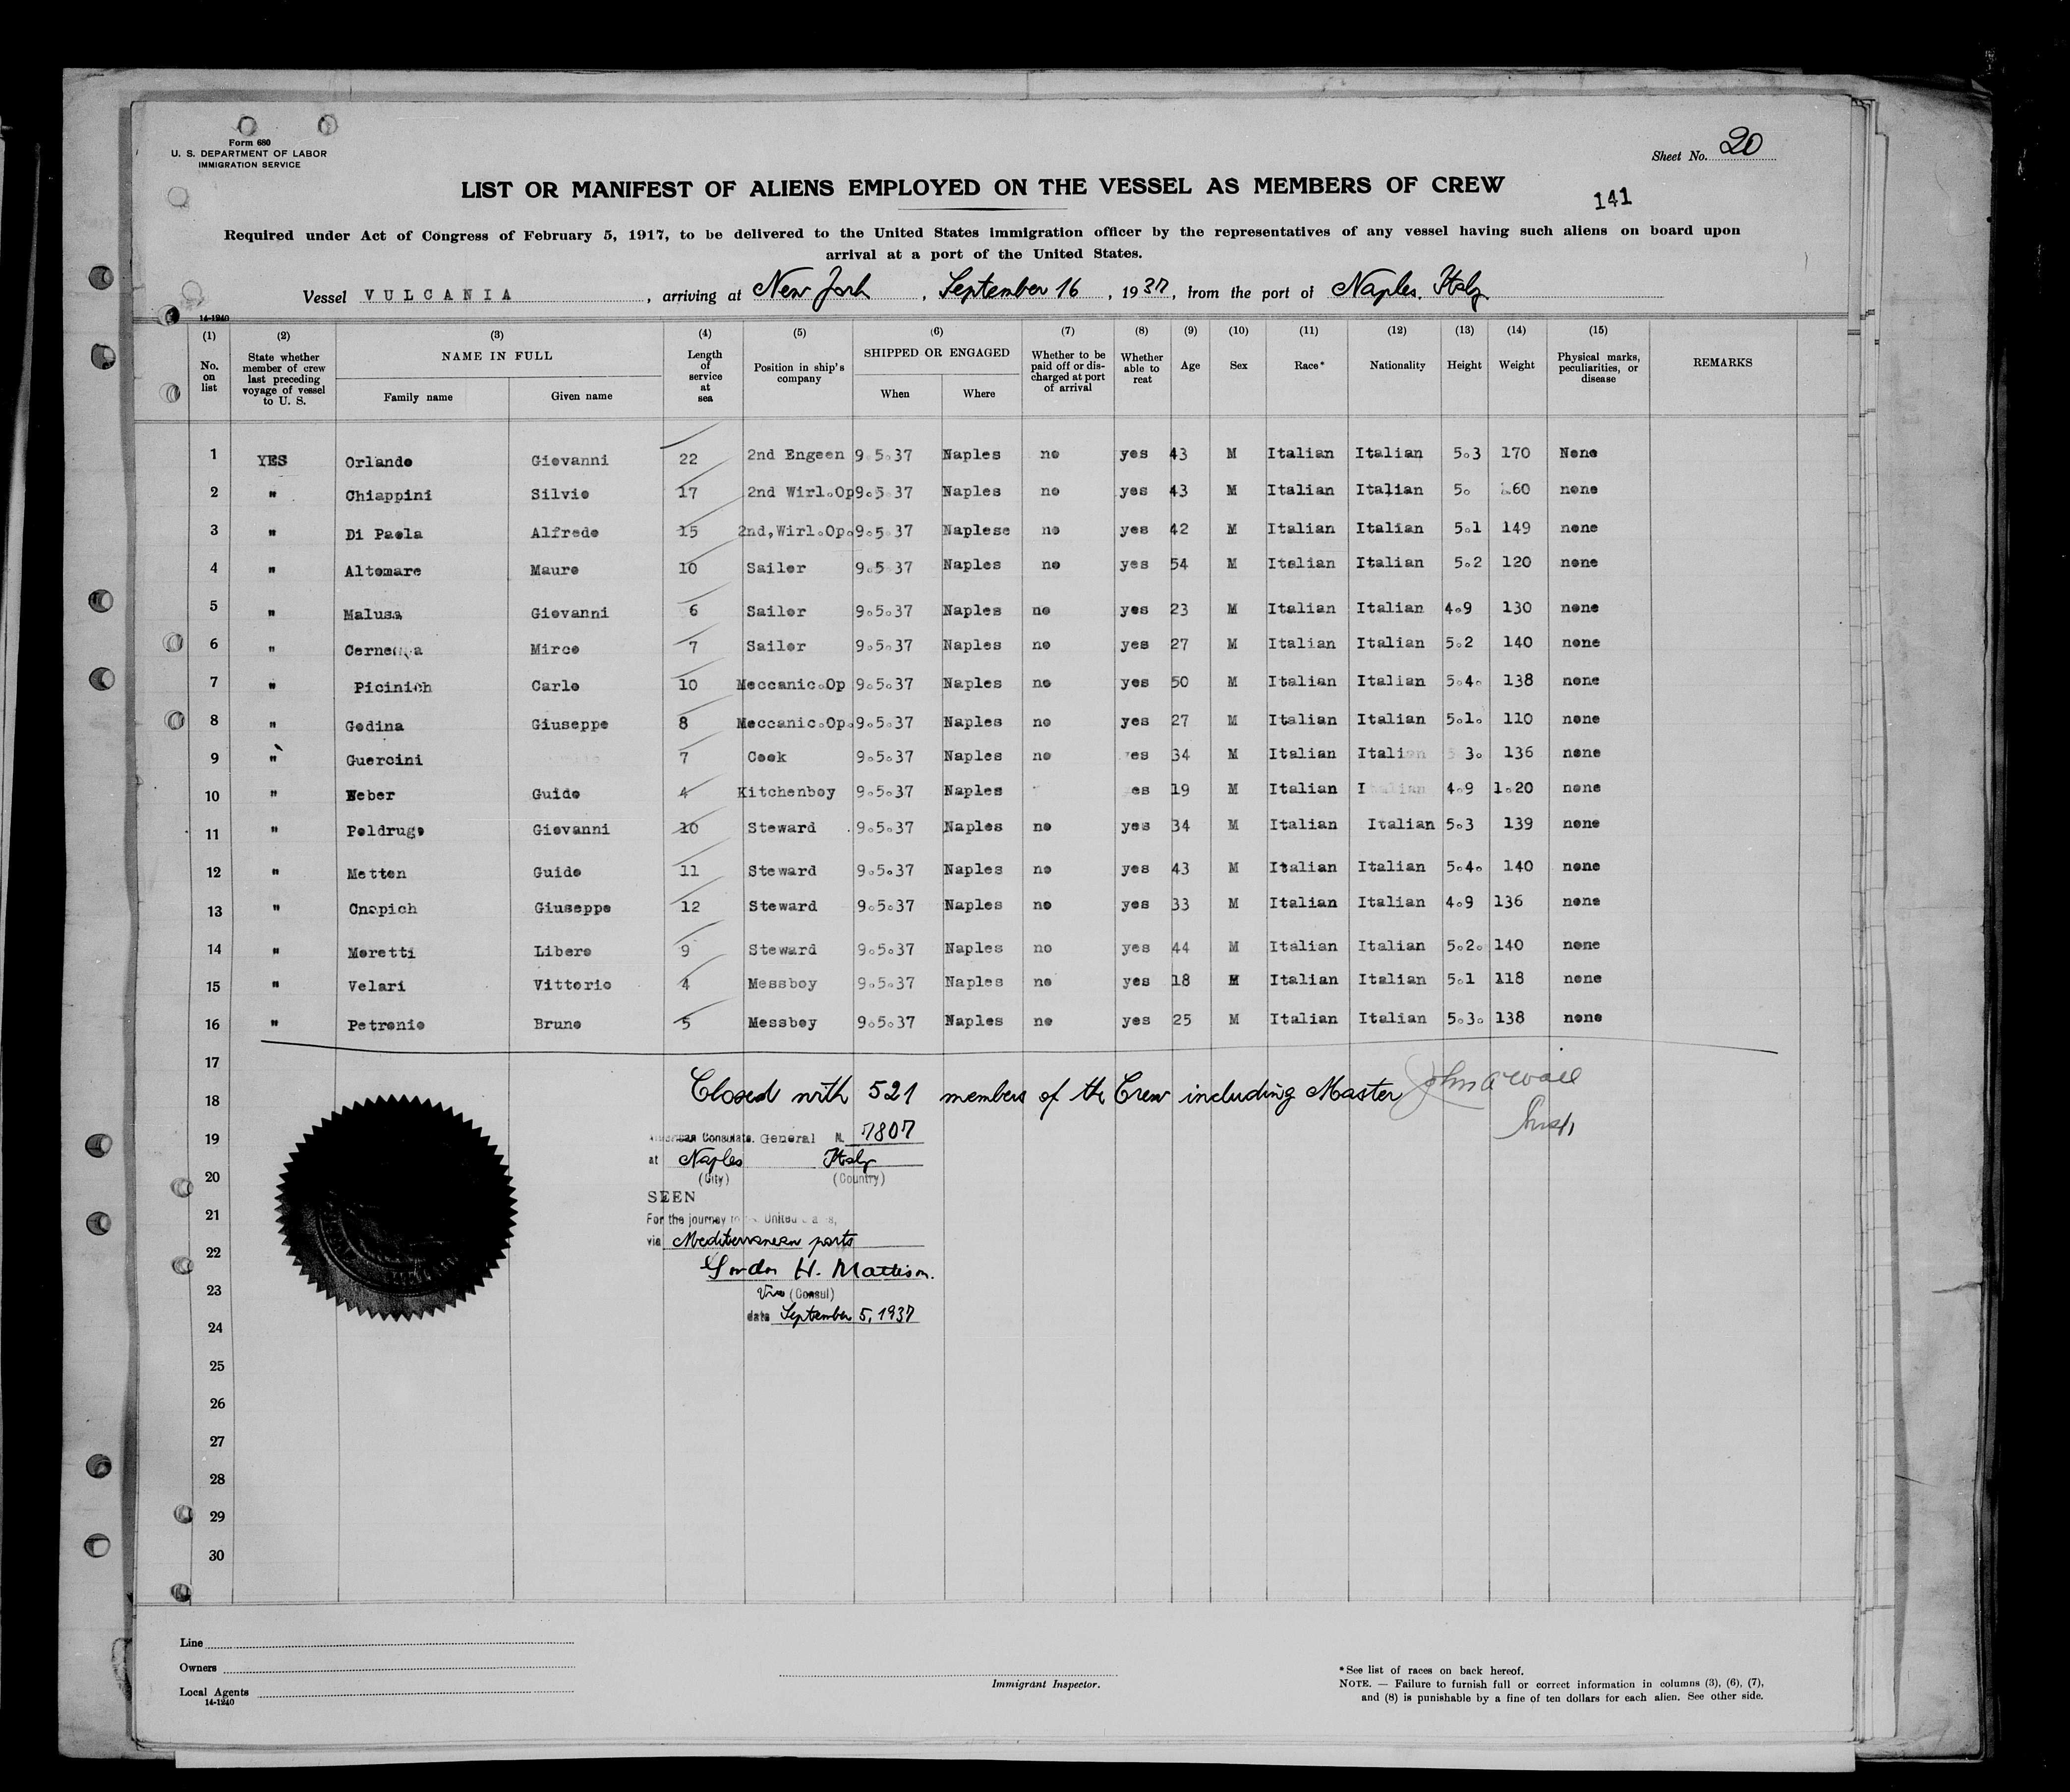 Form 680
U. S. DEPARTMENT OF LABOR
IMMIGRATION SERVICE
Sheet No. 20
LIST OR MANIFEST OF ALIENS EMPLOYED ON THE VESSEL AS MEMBERS OF CREW
141
Required under Act of Congress of February 5, 1917, to be delivered to the United States immigration officer by the representatives of any vessel having such aliens on board upon
arrival at a port of the United States.
Vessel VULCANIA, arriving at New York, September 16, 1937, from the port of Naples, Italy
14-1240
(1) (2) (3) (4) (5) (6) (7) (8) (9) (10) (11) (12) (13) (14) (15)
No. on list
State whether member of crew last preceding voyage of vessel to U. S.
NAME IN FULL
Family name
Given name
Length of service at sea
Position in ship's company
SHIPPED OR ENGAGED
When
Where
Whether to be paid off or discharged at port of arrival
Whether able to reat
Age
Sex
Race*
Nationality
Height
Weight
Physical marks, peculiarities, or disease
REMARKS
1 YES Orlando Giovanni 22 2nd Engeen 9.5.37 Naples no yes 43 M Italian Italian 5.3 170 None
2 " Chiappini Silvio 17 2nd Wirl.Op 9.5.37 Naples no yes 43 M Italian Italian 5. 160 none
3 " Di Paola Alfredo 15 2nd,Wirl.Op. 9.5.37 Naplese no yes 42 M Italian Italian 5.1 149 none
4 " Altomare Mauro 10 Sailor 9.5.37 Naples no yes 54 M Italian Italian 5.2 120 none
5 " Malusa Giovanni 6 Sailor 9.5.37 Naples no yes 23 M Italian Italian 4.9 130 none
6 " Mirco 7 Sailor 9.5.37 Naples no yes 27 M Italian Italian 5.2 140 none
7 " Picinich Carlo 10 Meccanic.Op 9.5.37 Naples no yes 50 M Italian Italian 5.4. 138 none
8 " Godina Giuseppe 8 Meccanic.Op. 9.5.37 Naples no yes 27 M Italian Italian 5.1. 110 none
9 " Guercini 7 Cook 9.5.37 Naples no yes 34 M Italian Italian 3. 136 none
10 " Weber Guido 4 Kitchenboy 9.5.37 Naples es 19 M Italian Italian 4.9 1.20 none
11 " Poldrugo Giovanni 10 Steward 9.5.37 Naples no yes 34 M Italian Italian 5.3 139 none
12 " Metton Guido 11 Steward 9.5.37 Naples no yes 43 M Italian Italian 5.4. 140 none
13 " Cnapich Giuseppe 12 Steward 9.5.37 Naples no yes 33 M Italian Italian 4.9 136 none
14 " Moretti Libero 9 Steward 9.5.37 Naples no yes 44 M Italian Italian 5.2. 140 none
15 " Velari Vittorio 4 Messboy 9.5.37 Naples no yes 18 M Italian Italian 5.1 118 none
16 " Petronio Bruno 5 Messboy 9.5.37 Naples no yes 25 M Italian Italian 5.3. 138 none
17
18 Closed with 521 members of the Crew including Master
19 American Consulate General N. 7807
at Naples Italy
20 (City) (Country)
SEEN
21 For the journey to the United States,
22 via Mediterranean ports
Gordon H. Mattison.
23 Vice (Consul)
24 date September 5, 1937
25
26
27
28
29
30
Line
Owners
Local Agents
14-1240
Immigrant Inspector.
*See list of races on back hereof.
NOTE. — Failure to furnish full or correct information in columns (3), (6), (7),
and (8) is punishable by a fine of ten dollars for each alien. See other side.